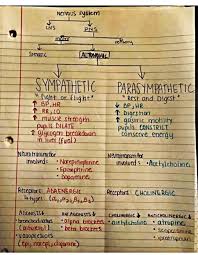 Nervous System
CNS
PNS
motor
sensory
Somatic
AUTONOMIC
SYMPATHETIC
"Fight or Flight"
↑ BP, HR
↑ RR,
↑ muscle strength
pupils DILATE
↑ glycogen breakdown
in liver (fuel)
Neurotransmitter
involved: • Norepinephrine
• Epinephrine
• Dopamine
Receptors: ADRENERGIC
4 types: (α1, α2, β1, β2)
AGONISTS
ANTAGONISTS ↓
• bronchodilators
• alpha blockers
(albuterol)
• beta blockers
• vasopressors
(epi, norepi, dopamine)
PARASYMPATHETIC
"Rest and Digest"
↓ BP, HR
↑ Digestion
↑ gastric motility
pupils CONSTRICT
conserve energy
Neurotransmitter
involved: • Acetylcholine
Receptors: CHOLINERGIC
CHOLINERGIC
ANTICHOLINERGIC ↓
• acetylcholine
• atropine
• scopolamine
• ipratropium